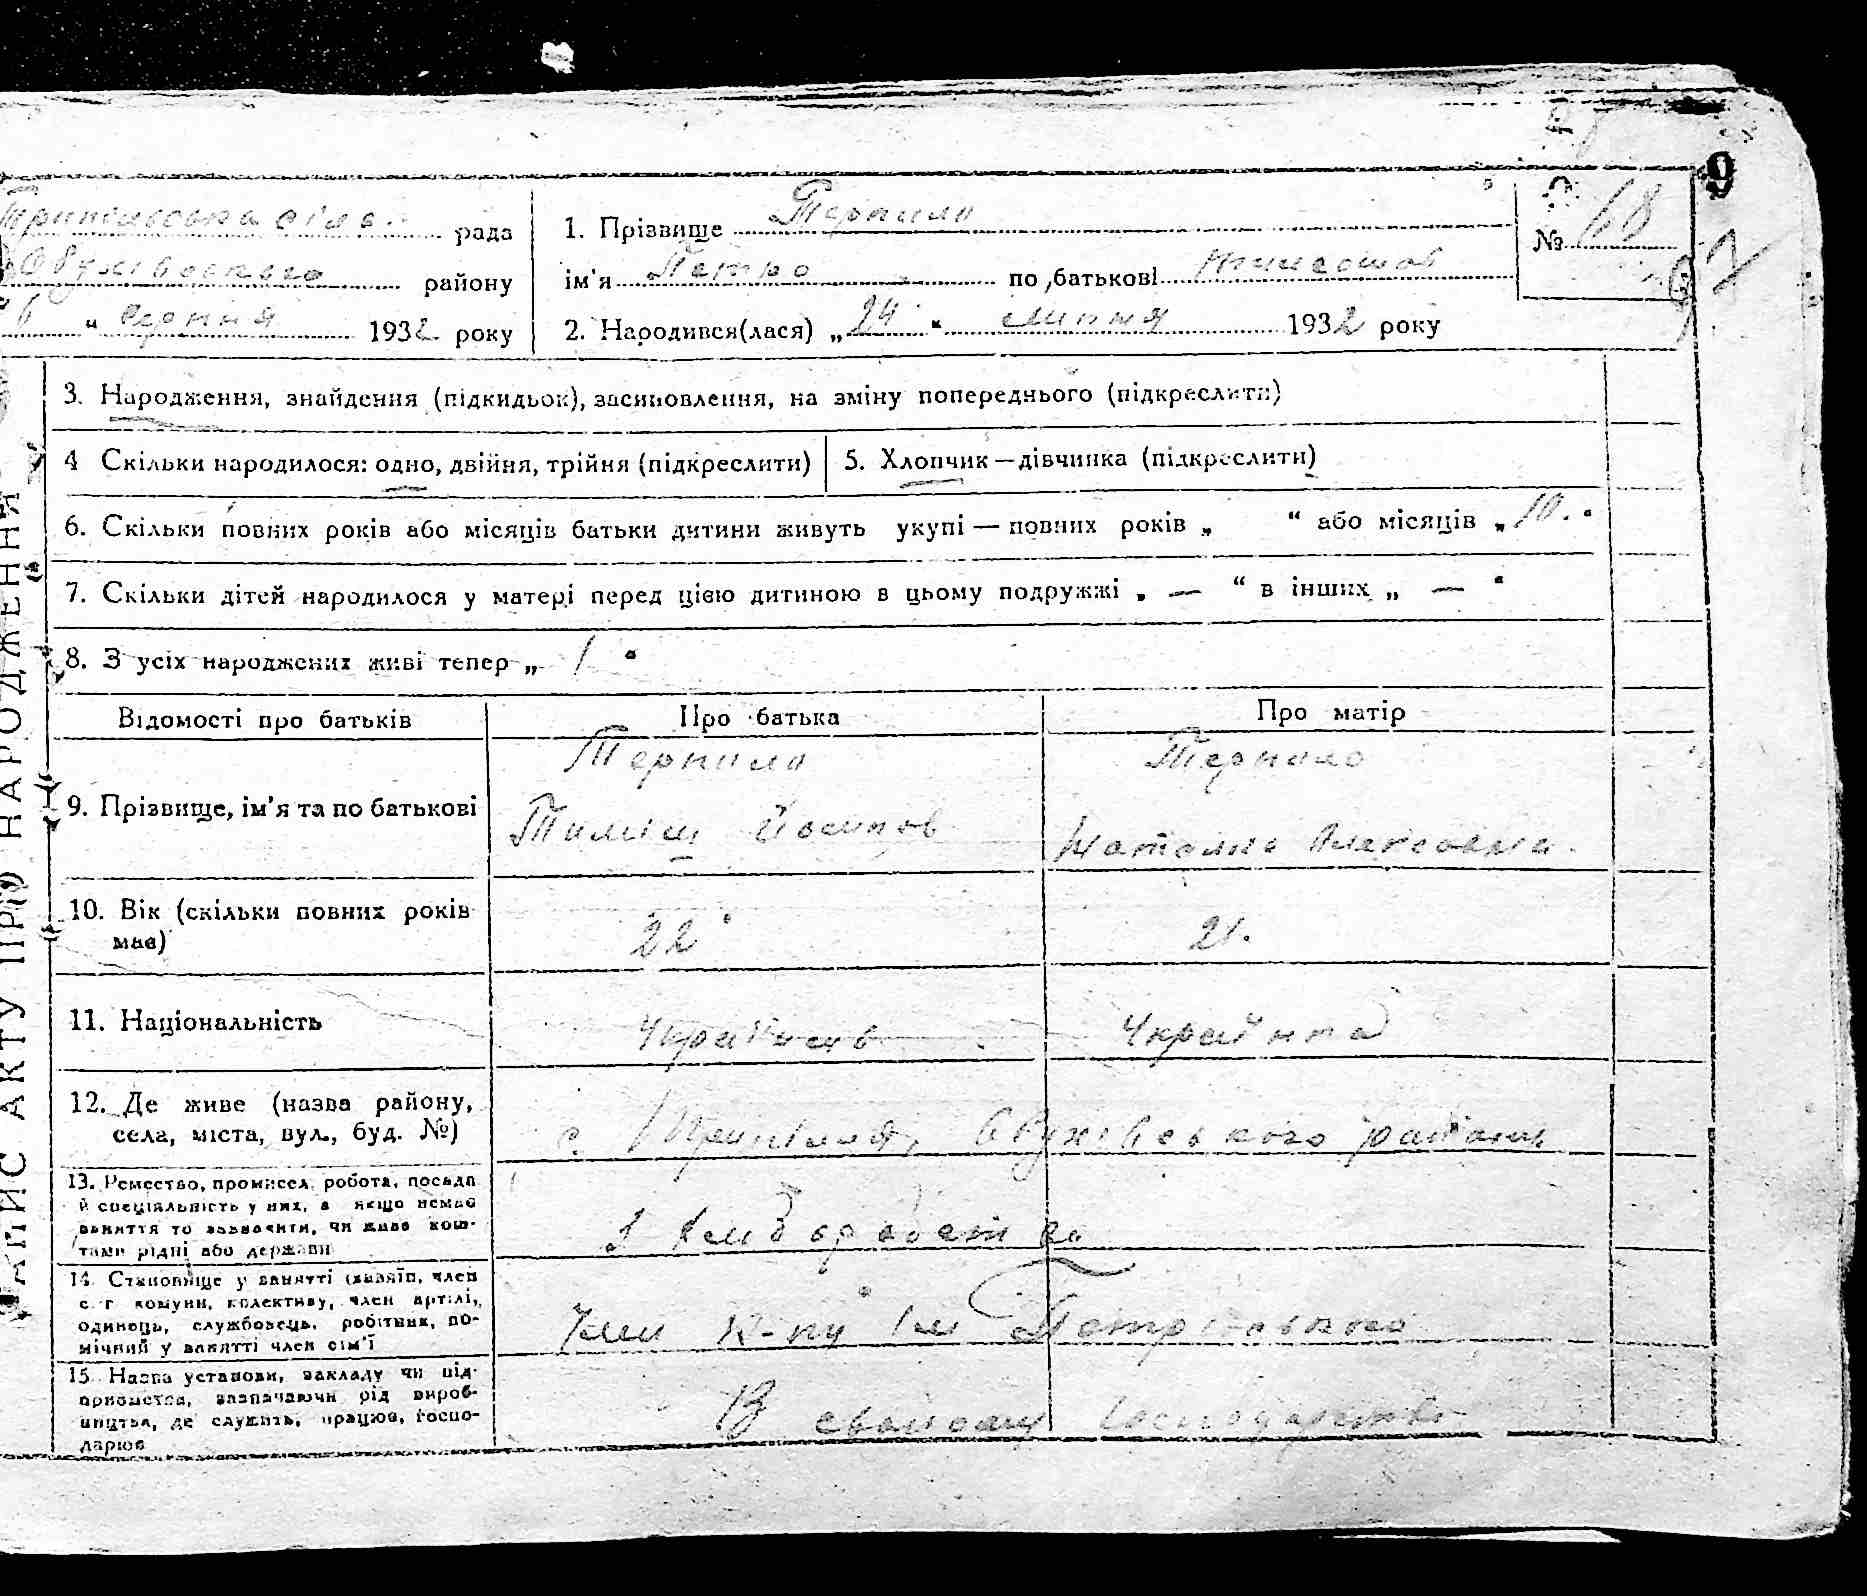 9
Трипільська сіль. рада
Обухівського району
6 " серпня 1932 року
1. Прізвище Терпило
№ 68
ім'я Петро по батькові Тимошов
2. Народився(лася) „ 24 " липня 1932 року
ЗАПИС АКТУ ПРО НАРОДЖЕННЯ
3. Народження, знайдення (підкидьок), засиновлення, на зміну попереднього (підкреслити)
4 Скільки народилося: одно, двійня, трійня (підкреслити)
5. Хлопчик—дівчинка (підкреслити)
6. Скільки повних років або місяців батьки дитини живуть укупі — повних років „ " або місяців „ 10. "
7. Скільки дітей народилося у матері перед цією дитиною в цьому подружжі „ — " в інших „ — "
8. З усіх народжених живі тепер „ 1 "
Відомості про батьків
Про батька
Про матір
9. Прізвище, ім'я та по батькові
Терпило
Тиміш Йосипов
Терпило
Наталка Алексовна.
10. Вік (скільки повних років
має)
22
21.
11. Національність
Українець
Українка
12. Де живе (назва району,
села, міста, вул., буд. №)
с. Трипілля, Обухівського району
13. Ремество, промисел, робота, посада
й спеціяльність у них, а якщо немає
заняття то зазначити, чи живе кош-
тами рідні або держави
Хліборобство
14. Становище у занятті (хазяїн, член
с. г комуни, колективу, член артілі,
одинець, службовець, робітник, по-
мічний у занятті член сім'ї
Член к-пу ім Петровського
15. Назва установи, закладу чи під-
приємства, зазначаючи рід вироб-
ництва, де служить, працює, госпо-
дарює
В свойому господарстві